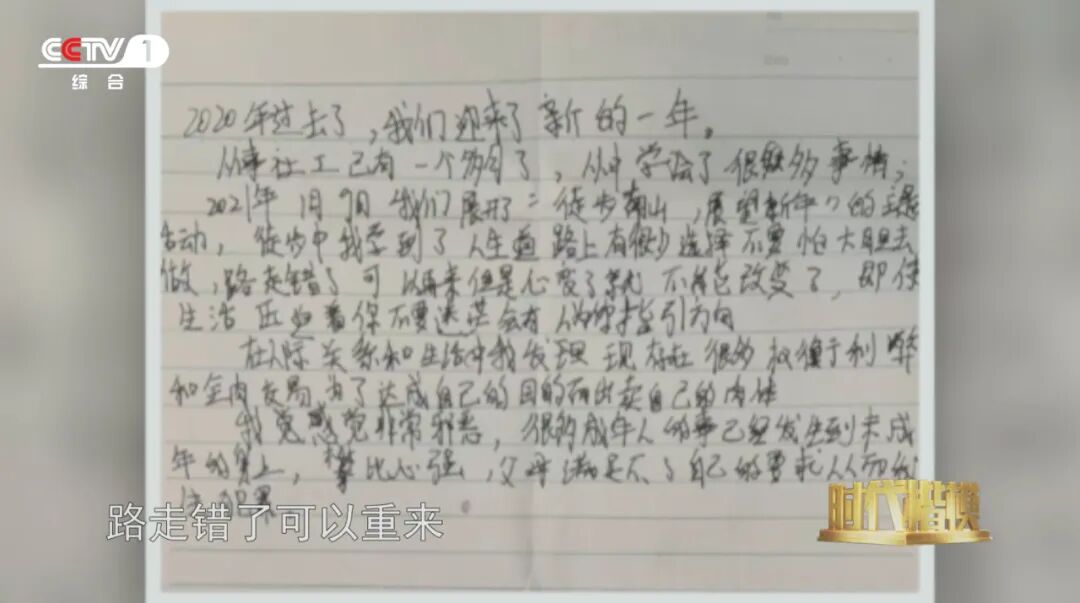 CCTV 1
综合
2020年过去了，我们迎来了新的一年。
从事社工已有一个多月了，从中学会了很多事情；
2021年1月9日我们展开了"徒步南山，展望新年"的主题
活动，徒步中我学到了人生道路上有很多选择不要怕大胆去
做，路走错了可以再来但是心变了就不能改变了，即使
生活压迫着你不要迷茫会有人为你指引方向
在人际关系和生活中我发现现存在很多权衡于利弊
和金肉交易为了达成自己的目的而出卖自己的肉体
我觉感觉非常邪恶，很多成年人的事已经发生到未成
年的身上，攀比心强，父母满足不了自己的要求从而
路走错了可以重来
时代楷模